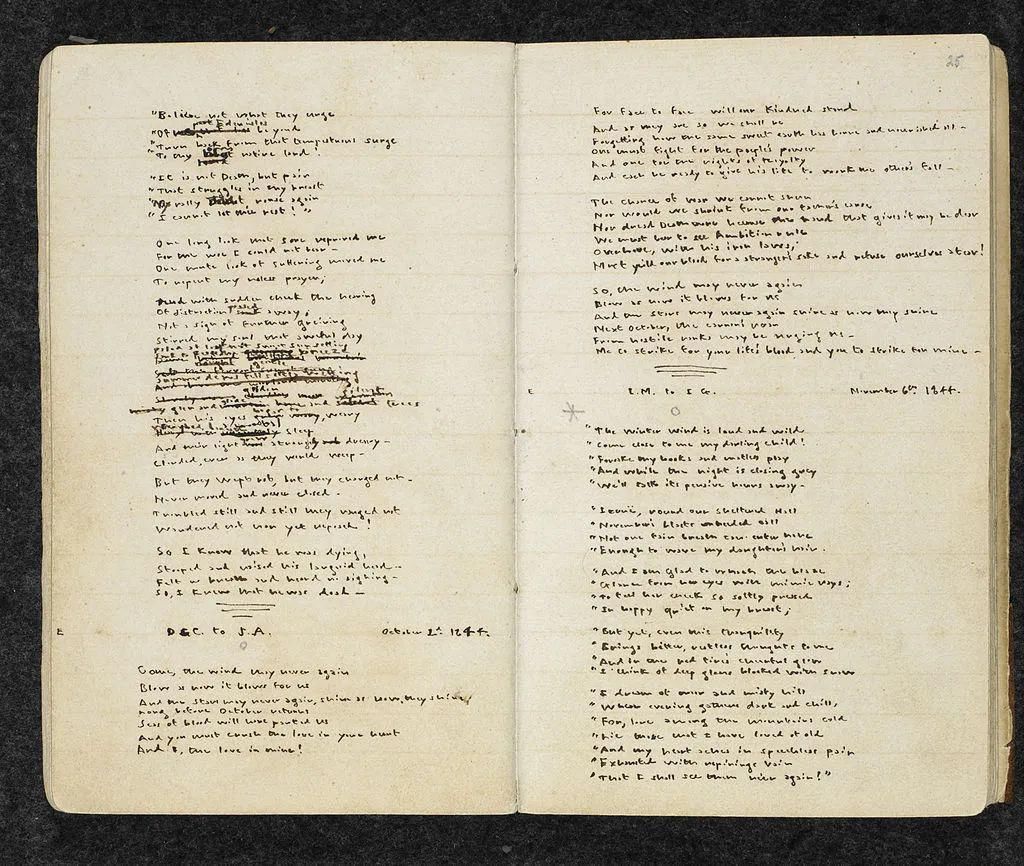 "Believe not what they urge
past Eden isles
"Of beyond
"Turn back from that tempestuous surge
"To thy native land!
"It is not Death, but pain
"That struggles in thy breast
"Nay rally rouse again
"I cannot let thee rest!"
One long look that sore reproved me
For the woe I could not bear –
One mute look of suffering moved me
To repent my useless prayer;
And with sudden check the heaving
Of distraction passed away;
Not a sign of further greiving
Stirred my soul that awful day
glen and and silent trees
Then his eyes weary
sleep
And their light grew strangely dreary –
Clouded, even as they would weep –
But they wept not, but they changed not –
Never moved and never closed –
Troubled still and still they ranged not
Wandered not nor yet reposed!
So I knew that he was dying,
Stooped and raised his languid head –
Felt no breath and heard no sighing –
So, I knew that he was dead –
E
D.G.C. to J.A.
October 2d 1844.
Come, the wind may never again
Blow as now it blows for us
And the Stars may never again, shine as now they shine;
Long before October returns
Seas of blood will have parted us
And you must crush the love in your heart
And I, the love in mine!
25
For face to face will our Kindred stand
And as they are so we shall be
Forgetting how the same sweet earth has borne and nourished all –
One must fight for the people's power
And one for the rights of royalty
And each be ready to give his life to work the other's fall –
The chance of war we cannot shun
Nor would we shrink from our fathers' cause
Nor dread Death more because the hand that gives it may be dear
We must bear to see Ambition rule
Over Love, with his iron laws;
Must yeild our blood for a stranger's sake and refuse ourselves a tear!
So, the wind may never again
Blow as now it blows for us
And the Stars may never again shine as now they shine
Next October, the cannon's roar
From hostile ranks may be urging us –
Me to strike for your life's blood and you to strike for mine –
E
I.M. to I G.
November 6th 1844.
"The winter wind is loud and wild
"Come close to me my darling child!
"Forsake thy books and mateless play
"And while the night is closing grey
"We'll talk its pensive hours away –
"Iernë, round our sheltered Hall
"November's blasts unheeded call
"Not one faint breath can enter here
"Enough to wave my daughter's hair
"And I am glad to watch the blaze
"Glance from her eyes with mimic rays;
"To feel her cheek so softly pressed
"In happy quiet on my breast;
"But yet, even this tranquility
"Brings bitter, restless thoughts to me
"And in the red fire's cheerful glow
"I think of deep glens blocked with snow
"I dream of moor and misty hill
"Where evening gathers dark and chill,
"For, lone among the mountains cold
"Lie those that I have loved of old
"And my heart aches in speechless pain
"Exhausted with repinings vain
"That I shall see them ne'er again!"